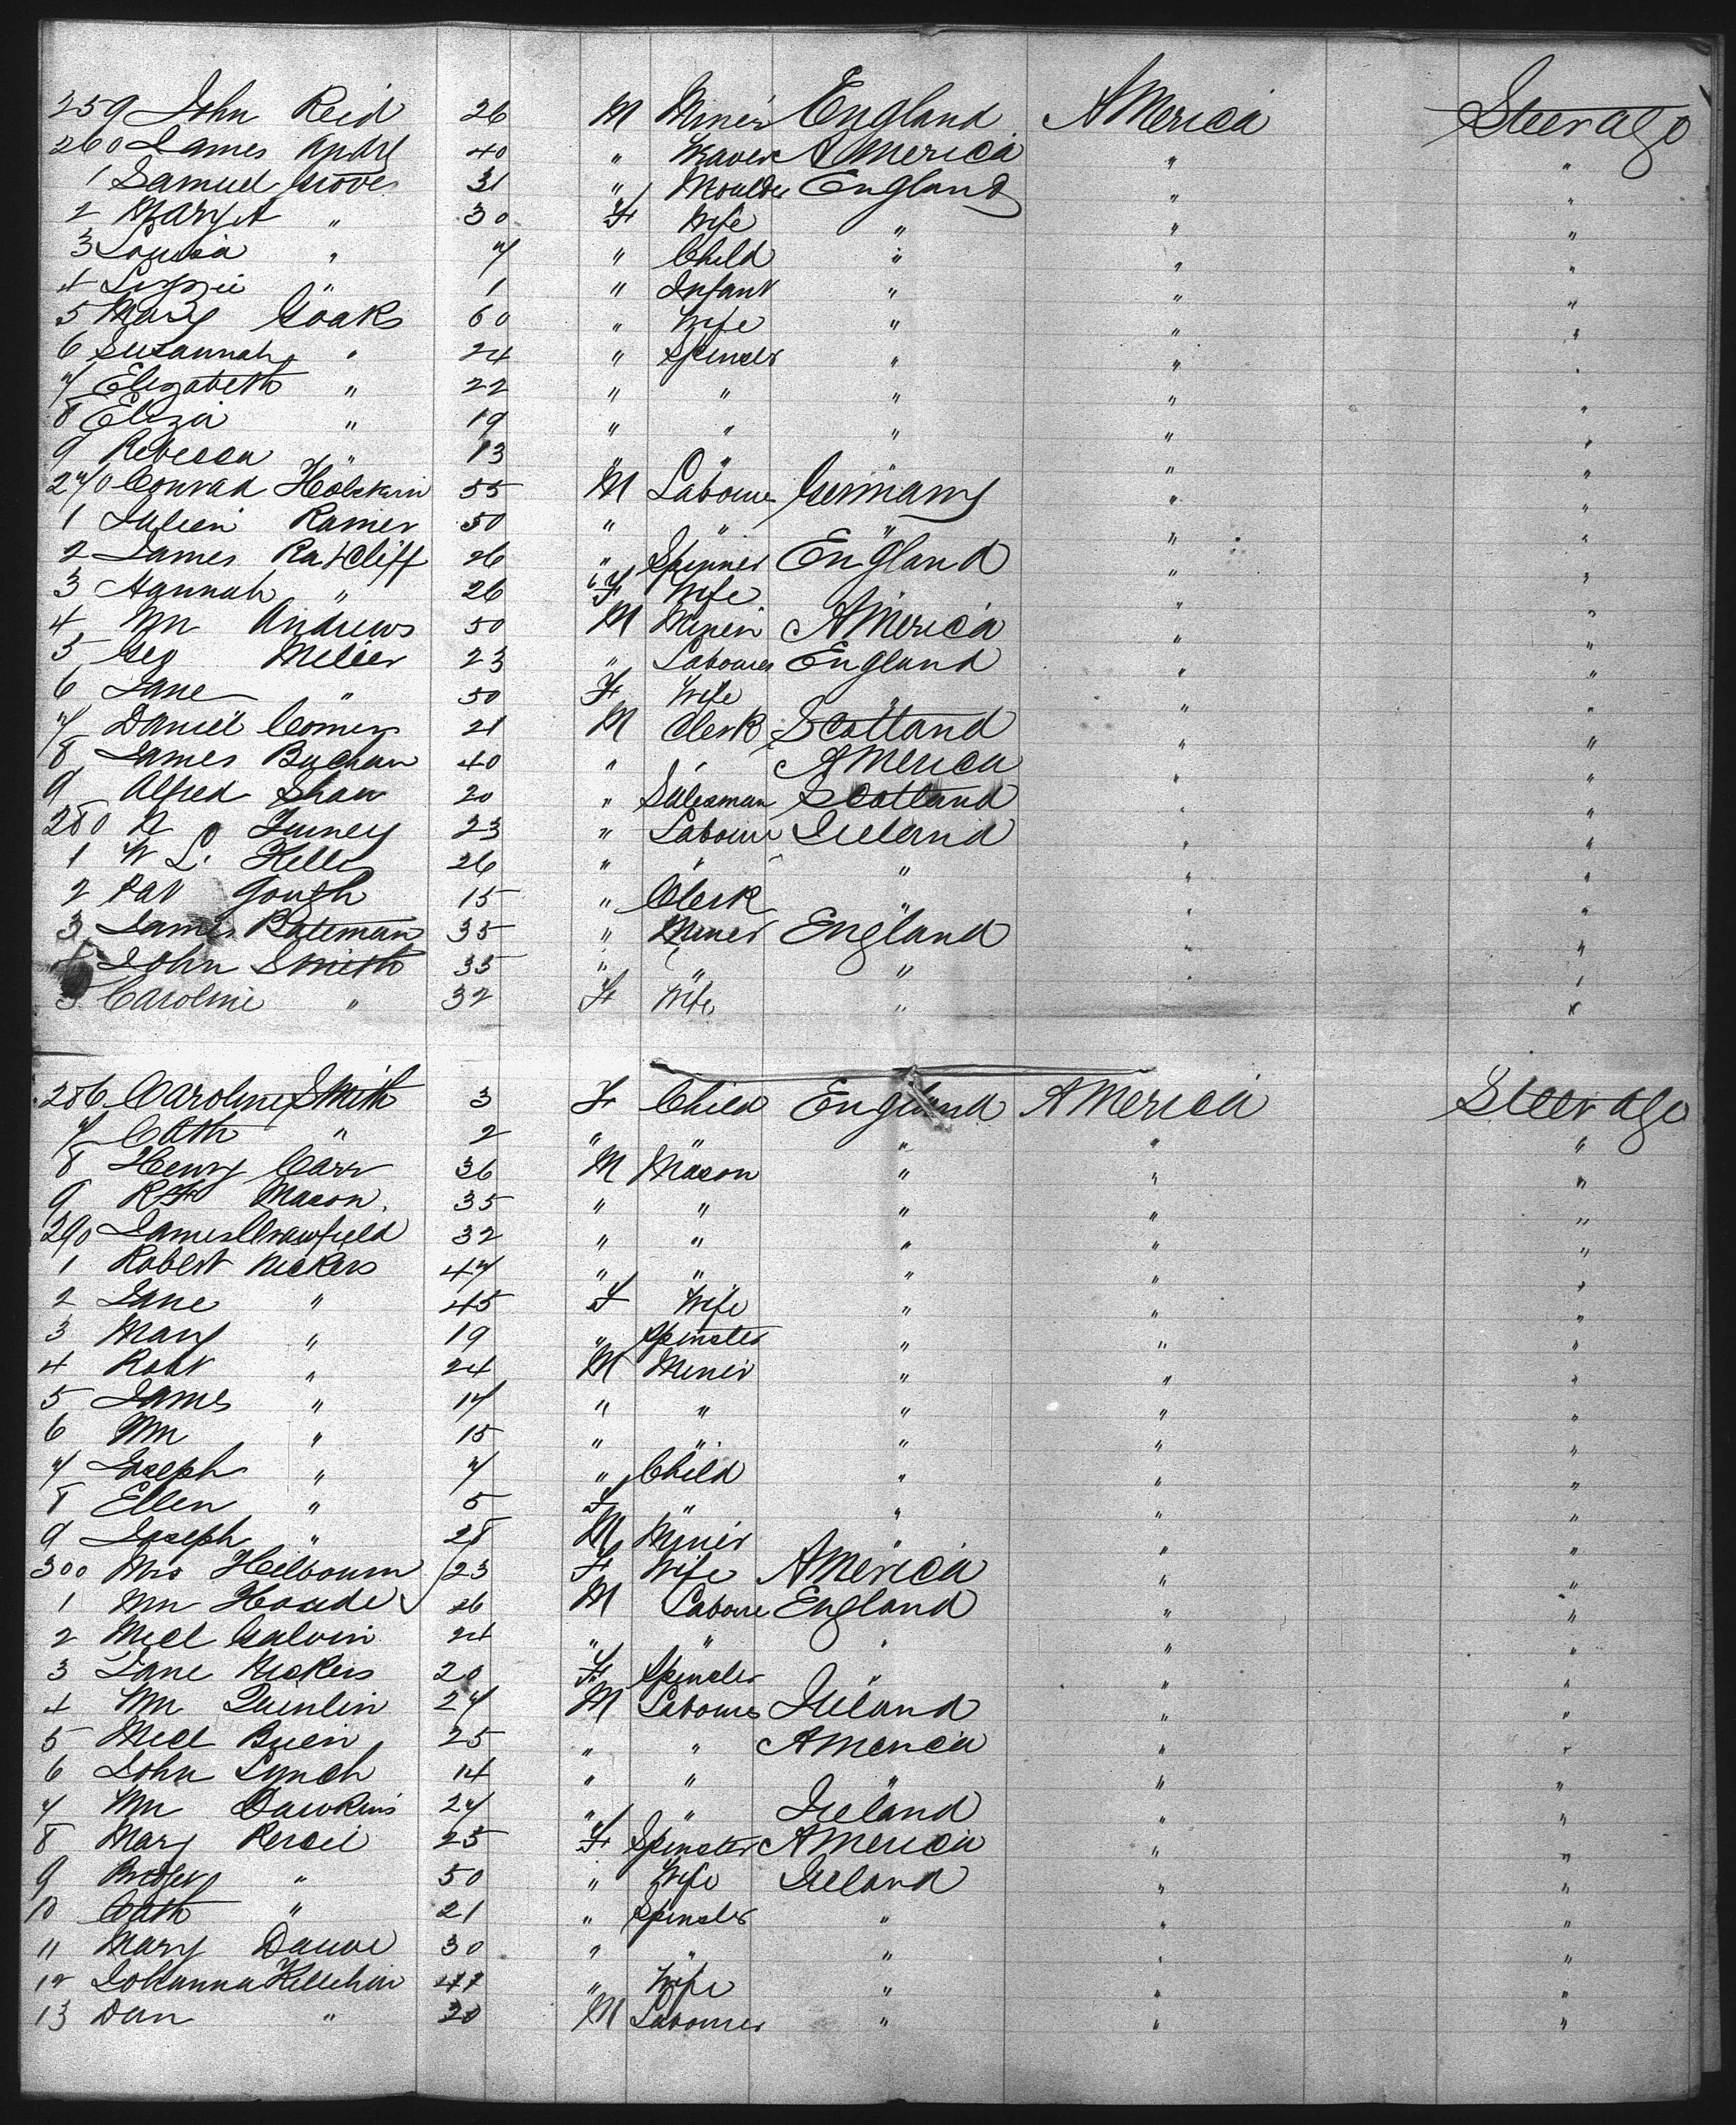 259 John Reid 26 M Miner England America Steerage
260 James Andre 40 " Weaver America " "
1 Samuel Groves 31 " Moulder England " "
2 Mary A " 30 F Wife " " "
3 Louisa " 7 " Child " " "
4 Lizzie " 1 " Infant " " "
5 Mary Goaks 60 " Wife " " "
6 Susannah " 24 " Spinster " " "
7 Elizabeth " 22 " " " " "
8 Eliza " 19 " " " " "
9 Rebecca " 13 " " " " "
270 Conrad 55 M Labourer Germany " "
1 Julien Ramer 50 " " " " "
2 James Ratcliff 26 " Spinner England " "
3 Hannah " 26 F Wife " "
4 Wm Andrews 50 M Miner America " "
5 Geo Miller 23 " Labourer England " "
6 Jane " 50 F Wife " " "
7 Daniel Comers 21 M Clerk Scotland " "
8 James Buchan 40 " " America " "
9 Alfred Shaw 20 " Salesman Scotland " "
280 N Turney 23 " Labourer Ireland " "
1 W L. Kelly 26 " " " " "
2 Pat Gough 15 " Clerk " " "
3 James Bateman 35 " Miner England " "
4 John Smith 35 " " " " "
5 Caroline " 32 F Wife " "
286 Caroline Smith 3 F Child England America Steerage
7 Cath " 2 " " " " "
8 Henry Carr 36 M Mason " " "
9 R H Mason 35 " " " " "
290 James Crawfield 32 " " " " "
1 Robert Nickers 47 " " " " "
2 Jane " 45 F Wife " " "
3 Mary " 19 " Spinster " " "
4 Robt " 24 M Miner " " "
5 James " 17 " " " " "
6 Wm " 15 " " " " "
7 Joseph " 7 " Child " " "
8 Ellen " 5 F " " " "
9 Joseph " 28 M Miner " " "
300 Mrs Helbourn 23 F Wife America " "
1 Wm Hoade 26 M Labourer England " "
2 Micl Galvin 24 " " " " "
3 Jane Nickers 20 F Spinster " " "
4 Wm Quinlin 27 M Labourer Ireland " "
5 Micl Buin 25 " " America " "
6 John Lynch 14 " " " " "
7 Wm Dawkins 27 " " Ireland " "
8 Mary 25 F Spinster America " "
9 Bridget " 50 " Wife Ireland " "
10 Cath " 21 " Spinster " " "
11 Mary 30 " " " " "
12 Johanna Kellehin " Wife " " "
13 Dan " 20 M Labourer " " "